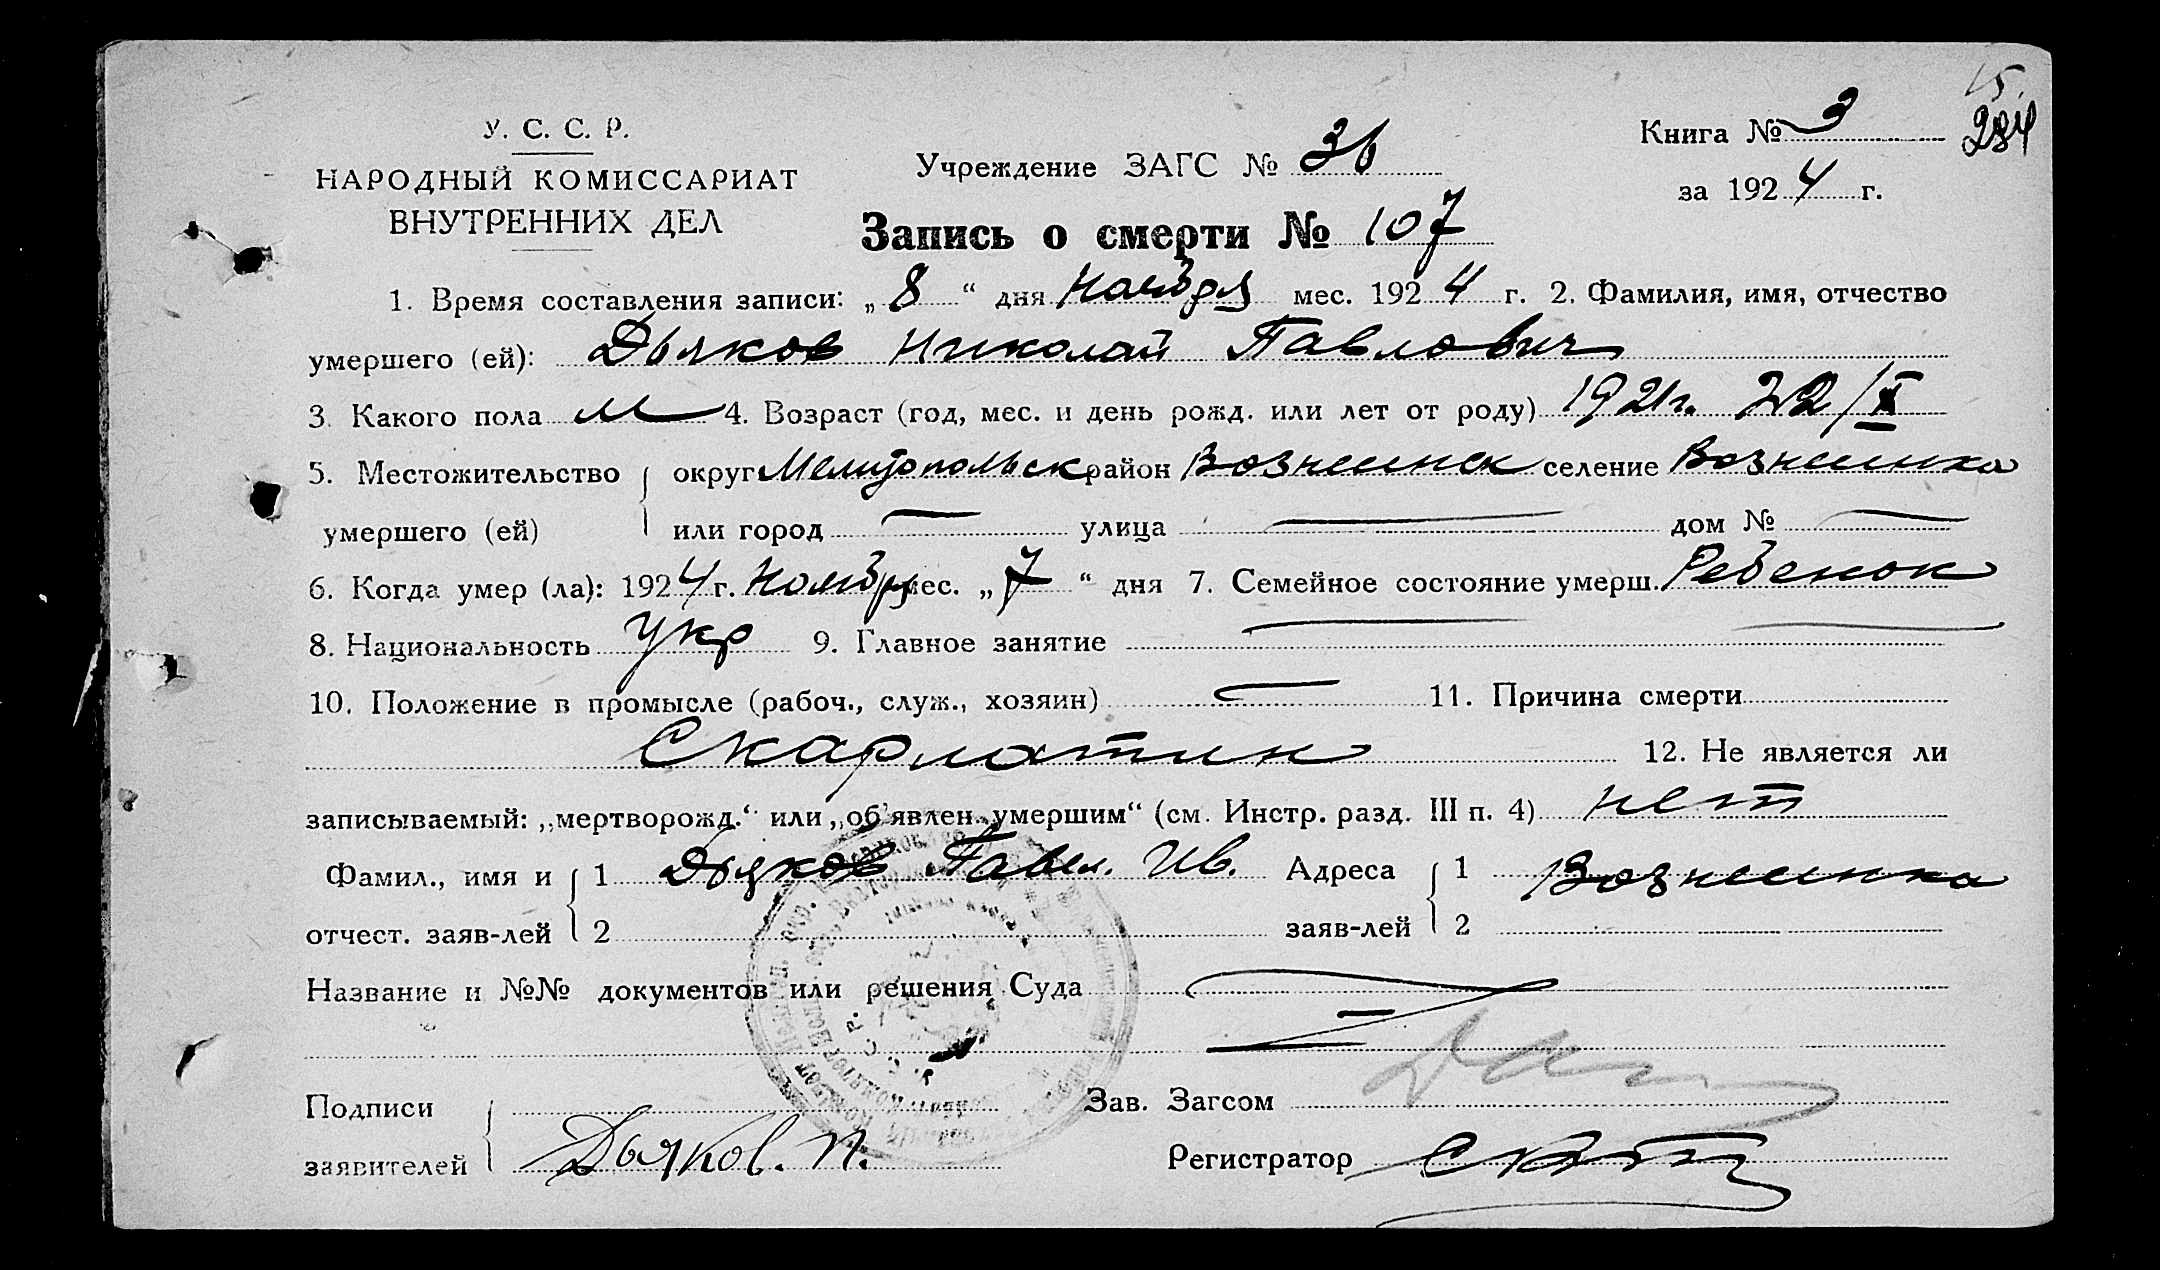 15.
284
У. С. С. Р.
НАРОДНЫЙ КОМИССАРИАТ
ВНУТРЕННИХ ДЕЛ
Учреждение ЗАГС № 36
Книга № 3
за 1924 г.
Запись о смерти № 107
1. Время составления записи: „8“ дня Ноября мес. 1924 г. 2. Фамилия, имя, отчество
умершего (ей): Дьяков Николай Павлович
3. Какого пола м 4. Возраст (год, мес. и день рожд. или лет от роду) 1921г. 22/X
5. Местожительство { округ Мелитопольск район Вознесенск селение Вознесенка
умершего (ей) или город — улица — дом № —
6. Когда умер (ла): 1924 г. Ноября мес. „7“ дня 7. Семейное состояние умерш. Ребенок
8. Национальность Укр 9. Главное занятие —
10. Положение в промысле (рабоч., служ., хозяин) — 11. Причина смерти
Скарлатин 12. Не является ли
записываемый: „мертворожд.“ или „об'явлен. умершим“ (см. Инстр. разд. III п. 4) нет
Фамил., имя и { 1 Дьяков Павел. Ив. Адреса { 1 Вознесенка
отчест. заяв-лей 2 заяв-лей 2
Название и №№ документов или решения Суда
Подписи Зав. Загсом
заявителей { Дьяков. П. Регистратор